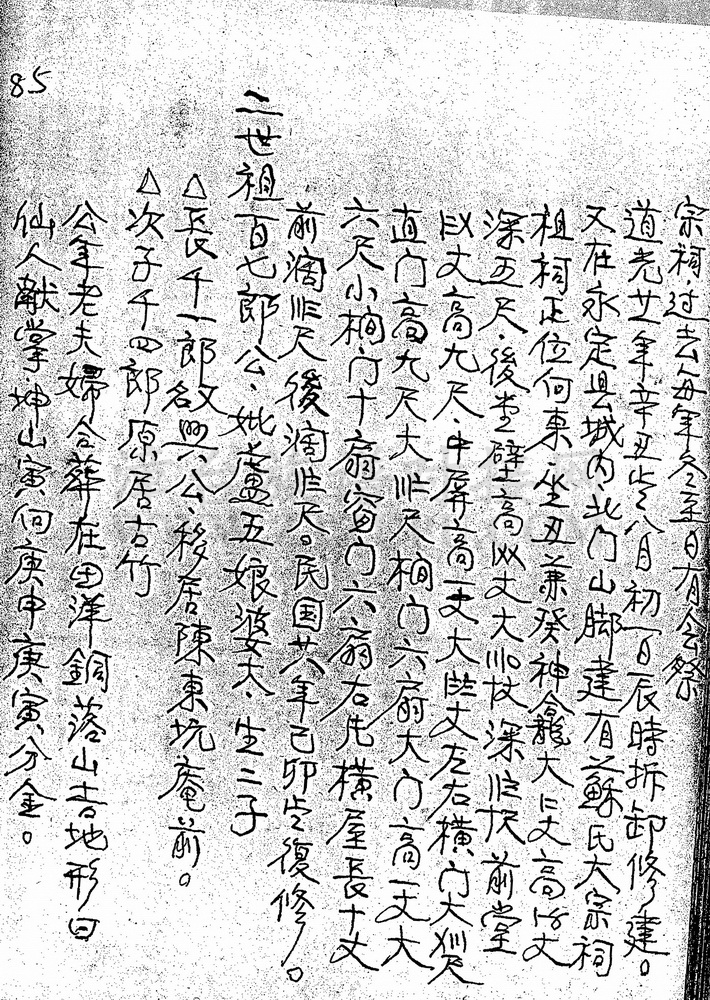 宗祠過去每年冬至日有会祭
道光廿一年辛丑歲八月初一日辰時拆卸修建。
又在永定县城内、北门山脚建有蘇氏大宗祠
祖祠正位向東、坐丑兼癸神龕大仁丈高丈
深五尺、後堂壁高丈大深前堂
丈高九尺、中屏高一丈大丈左右橫门大尺
直门高九尺大尺桷门六扇大门高一丈大
六尺小桷门十扇窗门六扇右片橫屋長十丈
前濶尺後濶尺。民国廿八年己卯歲復修。
二世祖百七郎公、妣盧五娘婆太、生二子
△長千一郎又名興公、移居陳東坑庵前。
△次子千四郎原居古竹
公年老夫婦合葬在田洋銅落山吉地形曰
仙人献掌坤山寅向庚申庚寅分金。
85